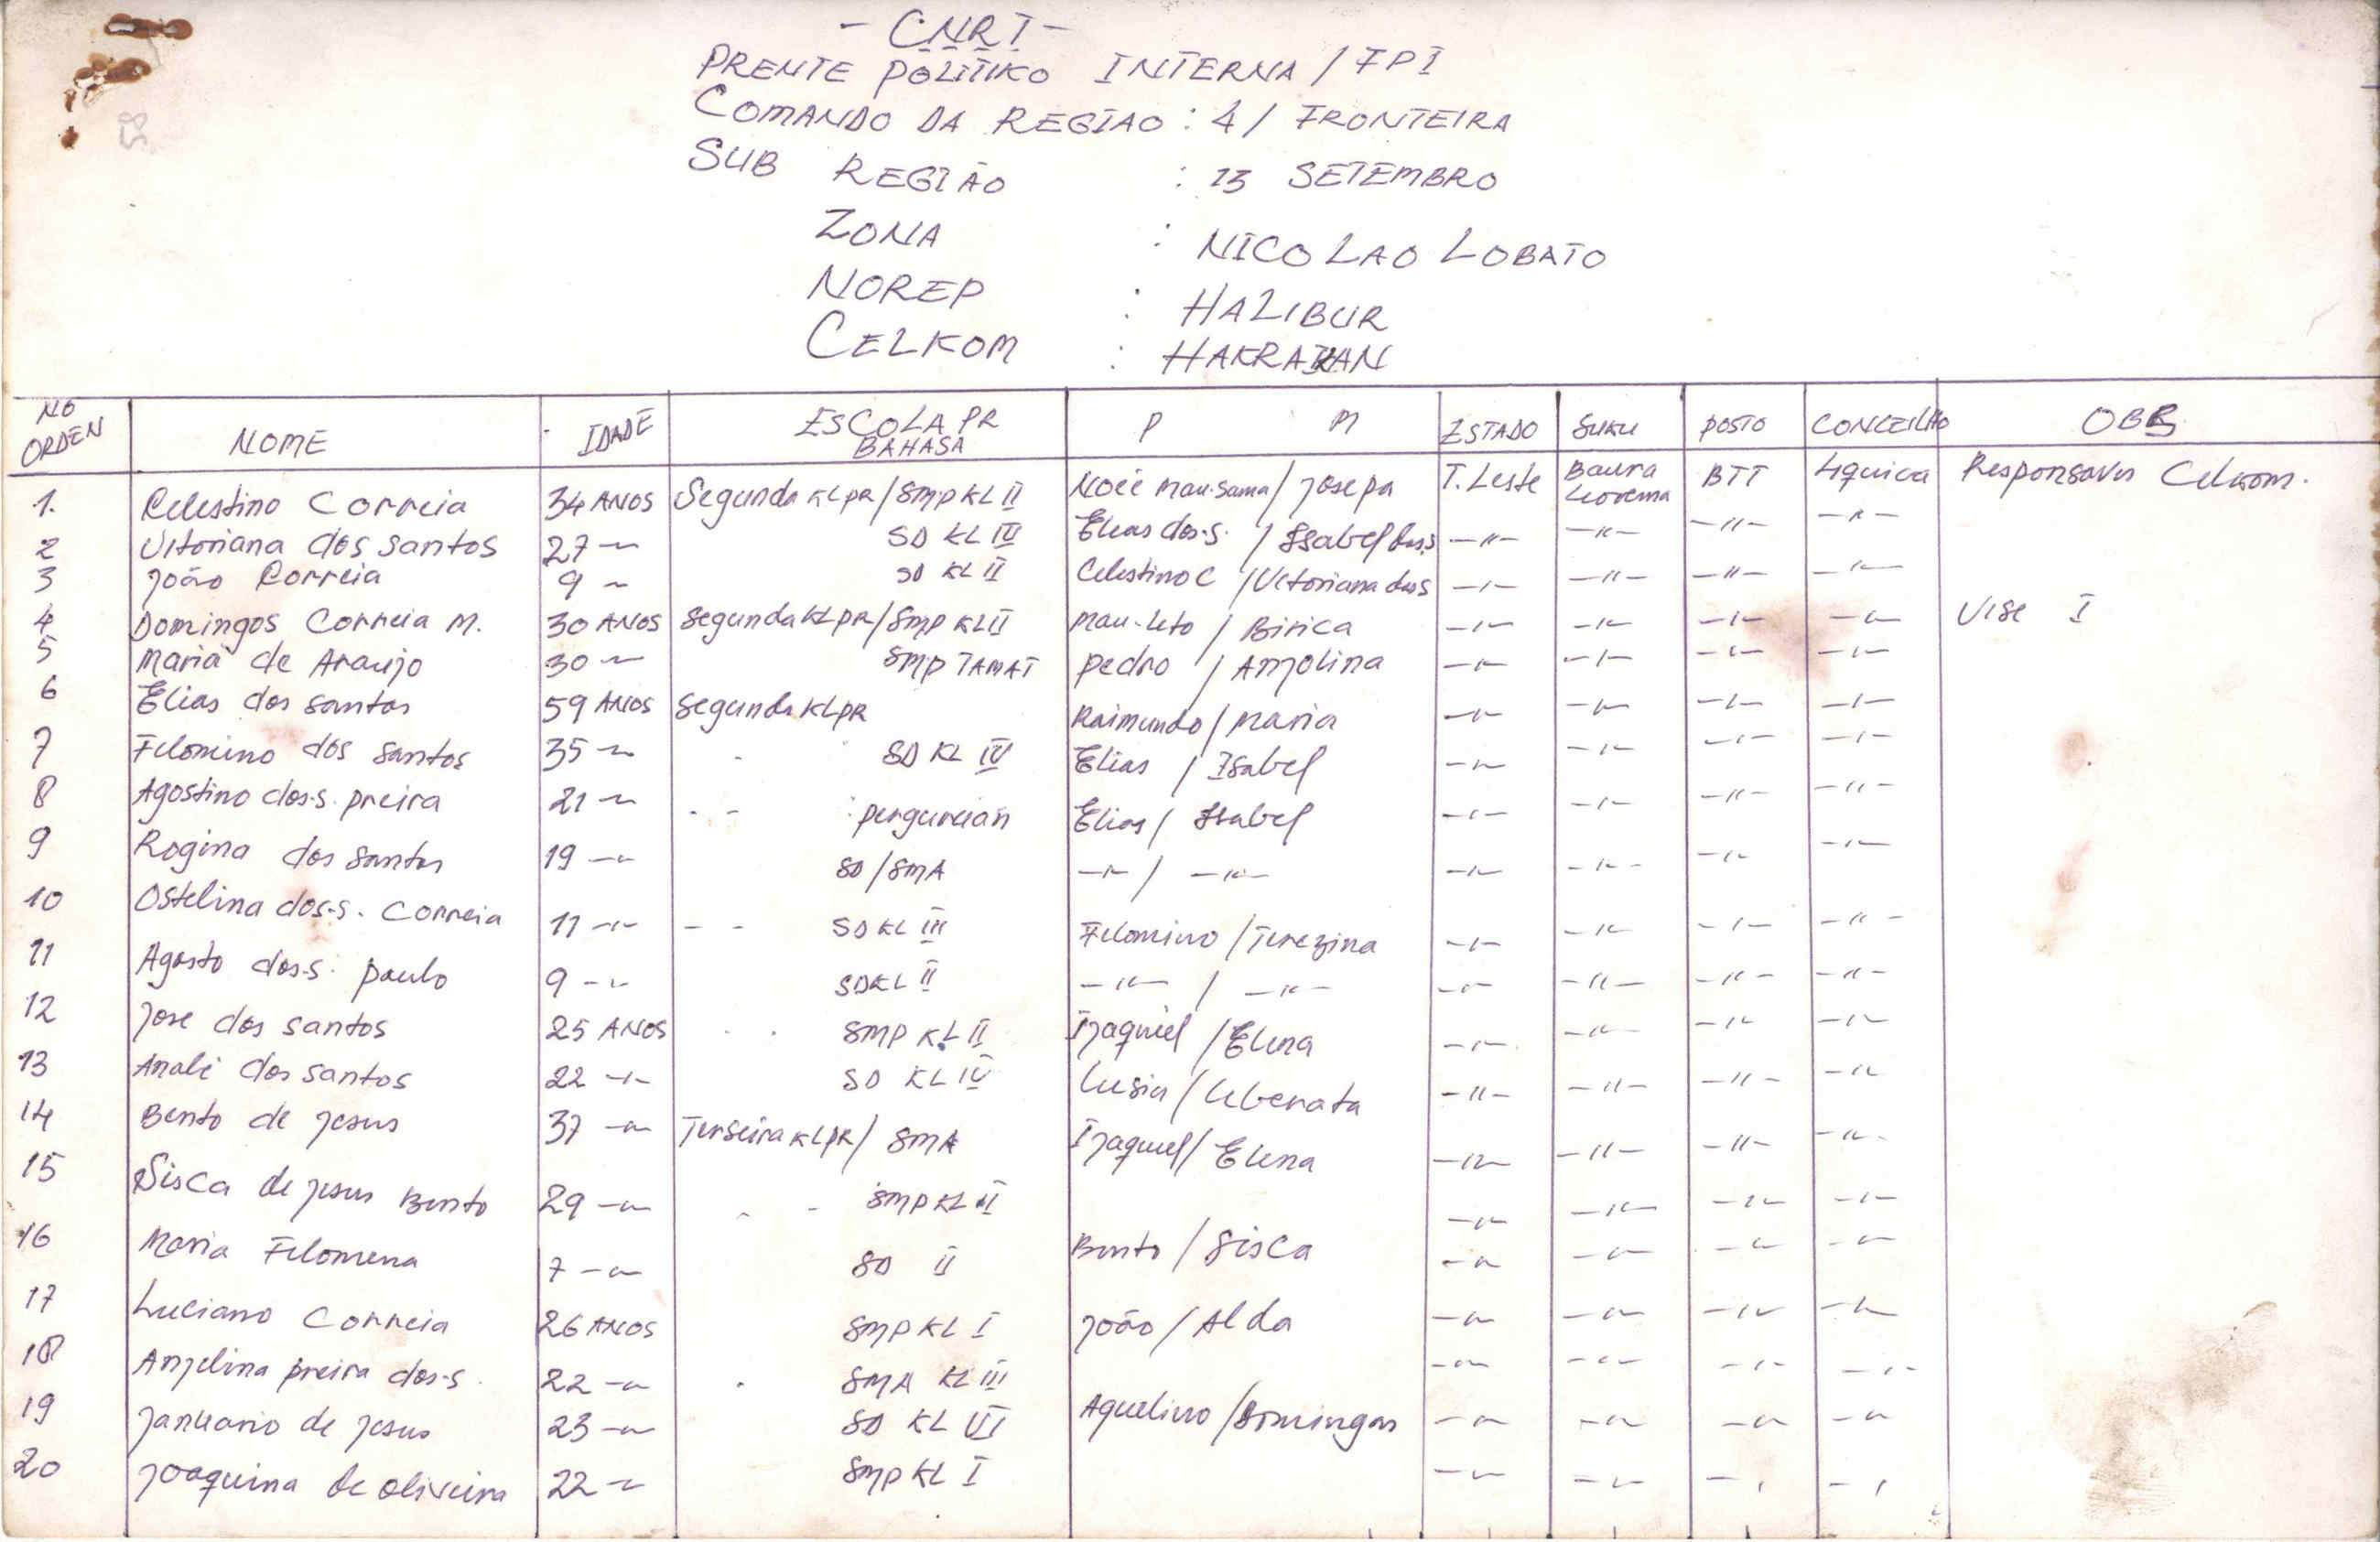 - CNRT -
PRENTE POLITIKO INTERNA / FPI
COMANDO DA REGIAO : 4 / FRONTEIRA
SUB REGIÃO : 13 SETEMBRO
ZONA : NICOLAO LOBATO
NOREP : HALIBUR
CELKOM : HAKRAKAN
NO ORDEN NOME IDADE ESCOLA PR BAHASA P M ESTADO SUKU POSTO CONCEILHO OBS
1. Celestino Correia 34 ANOS Segunda KLPR / SMP KL II Noie Mau-Sama / Josepa T. Leste Baura BTT Liquica Responsaver Celkom.
2 Vitoriana dos santos 27 -"- SD KL IV Elias dos.s. / Isabel dos.s -"- -"- -"- -"-
3 João Correia 9 -"- SD KL II Celestino C / Vitoriana dos s -"- -"- -"- -"-
4 Domingos Correia M. 30 ANOS Segunda KLPR / SMP KL II Mau-Leto / Birica -"- -"- -"- -"- Vise I
5 Maria de Araujo 30 -"- SMP TAMAT Pedro / Anjolina -"- -"- -"- -"-
6 Elias dos santos 59 ANOS Segunda KLPR Raimundo / Maria -"- -"- -"- -"-
7 Filomino dos santos 35 -"- SD KL IV Elias / Isabel -"- -"- -"- -"-
8 Agostino dos.s. preira 21 -"- perguruan Elias / Isabel -"- -"- -"- -"-
9 Rogina dos santos 19 -"- SD / SMA -"- / -"- -"- -"- -"- -"-
10 Ostelina dos.s. Correia 11 -"- - - SD KL III Filomino / Terezina -"- -"- -"- -"-
11 Agosto dos.s. paulo 9 -"- SD KL II -"- / -"- -"- -"- -"- -"-
12 Jose dos santos 25 ANOS SMP KL II Ijaquiel / Elena -"- -"- -"- -"-
13 Anabe dos santos 22 -"- SD KL IV Lusia / Liberata -"- -"- -"- -"-
14 Bento de Jesus 37 -"- Terseira KLPR / SMA Ijaquiel / Elena -"- -"- -"- -"-
15 Sisca de Jesus Bento 29 -"- SMP KL II -"- -"- -"- -"-
16 Maria Filomena 7 -"- SD II Bento / Sisca -"- -"- -"- -"-
17 Luciano Correia 26 ANOS SMP KL I João / Alda -"- -"- -"- -"-
18 Anjelina preira dos.s. 22 -"- SMA KL III -"- -"- -"- -"-
19 Januario de Jesus 23 -"- SD KL VI Aquelino / Domingas -"- -"- -"- -"-
20 Joaquina de oliveira 22 -"- SMP KL I -"- -"- -"- -"-